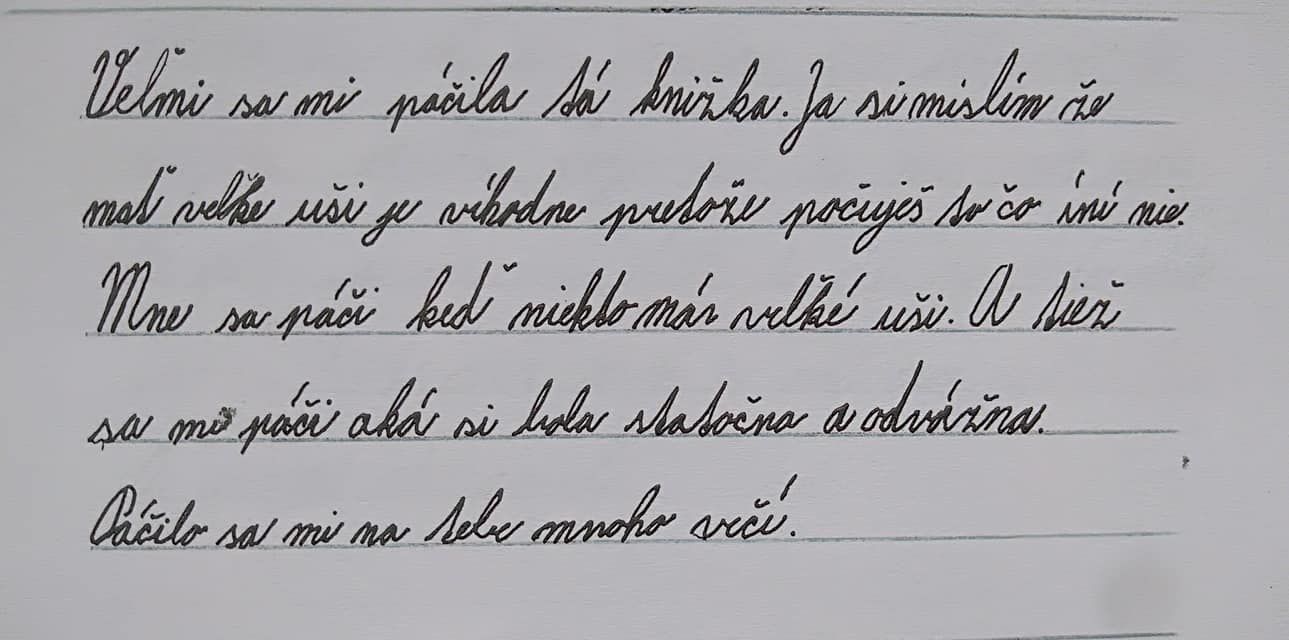 Veľmi sa mi páčila tá knižka. Ja si mislím že
mať veľke uši je víhodne pretože počuješ to čo íní nie.
Mne sa páči keď niekto má veľké uši. A tiež
sa mi páči aká si bola statočna a odvážna.
Páčilo sa mi na tebe mnoho večí.